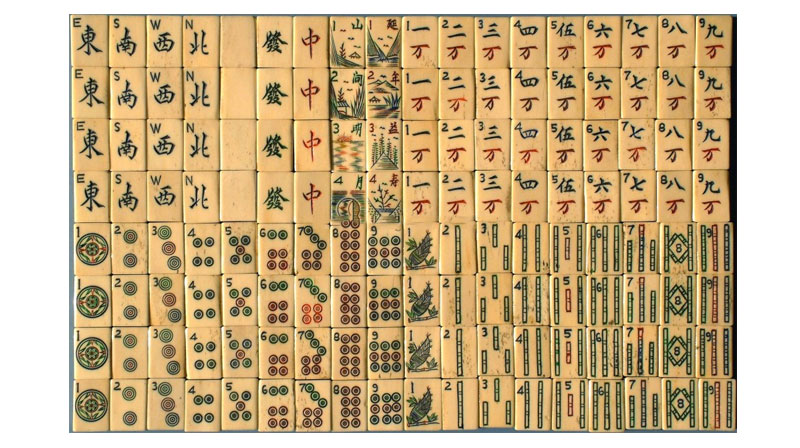 E 東 S 南 W 西 N 北 發 中 1 山 1 延 1 一万 2 二万 3 三万 4 四万 5 伍万 6 六万 7 七万 8 八万 9 九万
E 東 S 南 W 西 N 北 發 中 2 向 2 年 1 一万 2 二万 3 三万 4 四万 5 伍万 6 六万 7 七万 8 八万 9 九万
E 東 S 南 W 西 N 北 發 中 3 明 3 益 1 一万 2 二万 3 三万 4 四万 5 伍万 6 六万 7 七万 8 八万 9 九万
E 東 S 南 W 西 N 北 發 中 4 月 4 寿 1 一万 2 二万 3 三万 4 四万 5 伍万 6 六万 7 七万 8 八万 9 九万
1 2 3 4 5 6 7 8 9 1 2 3 4 5 6 7 8 9
1 2 3 4 5 6 7 8 9 1 2 3 4 5 6 7 8 9
1 2 3 4 5 6 7 8 9 1 2 3 4 5 6 7 8 9
1 2 3 4 5 6 7 8 9 1 2 3 4 5 6 7 8 9